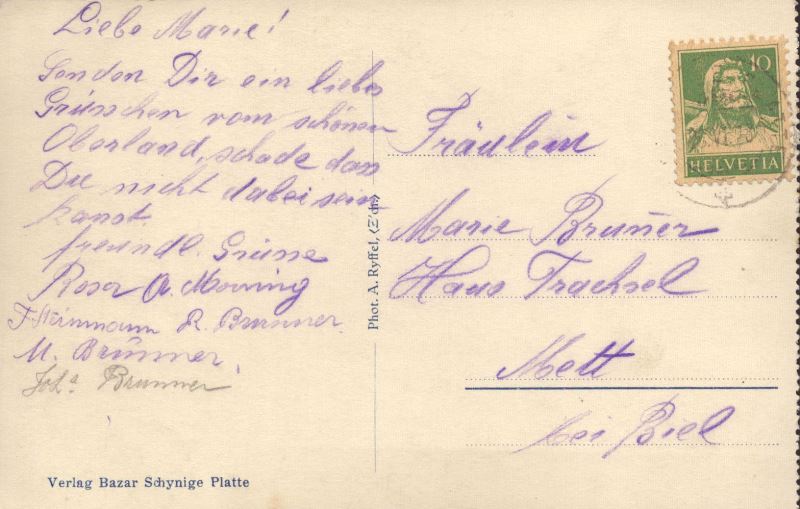 Liebe Marie!
Senden Dir ein liebes
Grüsschen vom schönen
Oberland, schade dass
Du nicht dabei sein
kanst.
freundl. Grüsse
Rosa A.
F. Steinmann R. Brunner
M. Brunner
Brunner
Verlag Bazar Schynige Platte
Phot. A. Ryffel, (Z'ch.)
10
HELVETIA
Fräulein
Marie Bruner
Haus Trachsel
Mett
bei Biel